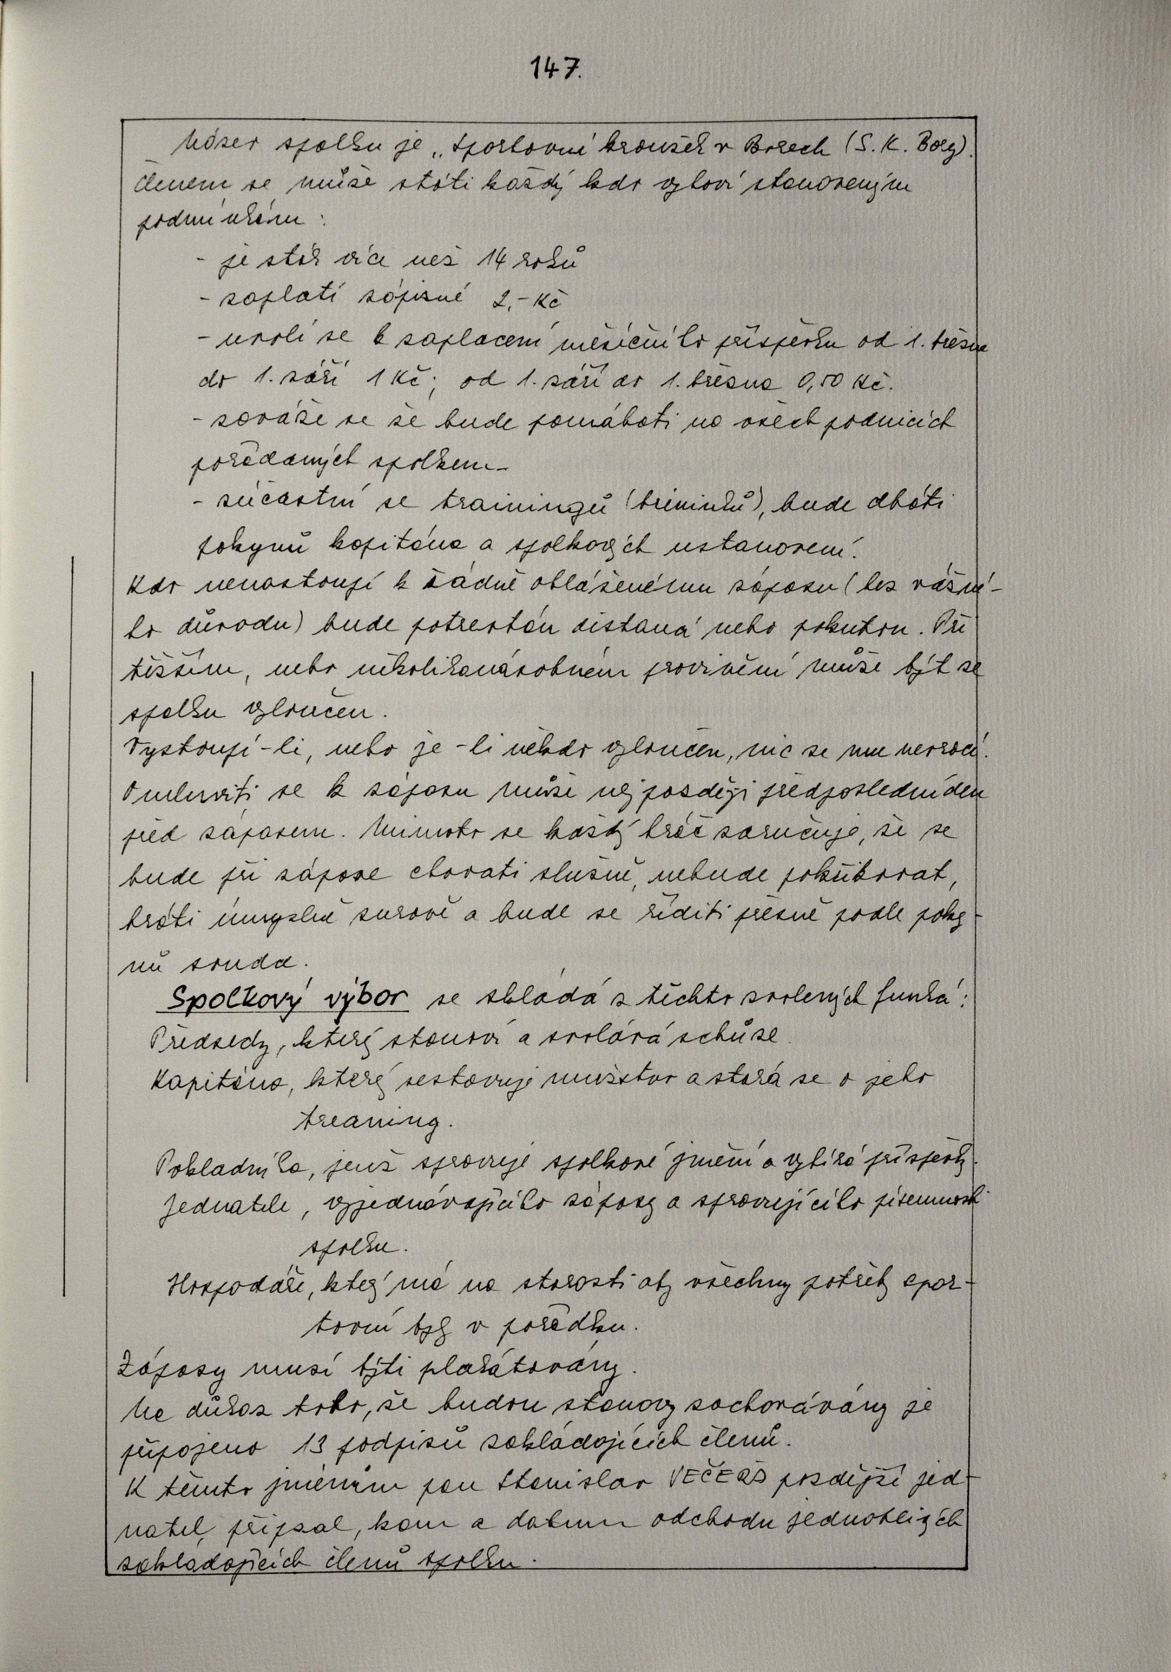 147.
Název spolku je „Sportovní kroužek v Borech (S.K. Bory).
Členem se může státi každý kdo vyhoví stanoveným
podmínkám:
- je stár více než 14 roků
- zaplatí zápisné 2,- Kč
- uvolí se k zaplacení měsíčního příspěvku od 1. března
do 1. září 1 Kč; od 1. září do 1. března 0,50 Kč.
- zaváže se že bude pomáhati na všech podnicích
pořádaných spolkem.
- súčastní se trainingů (tréninků), bude dbáti
pokynů kapitána a spolkových ustanovení.
Kdo nenastoupí k řádně ohlášenému zápasu (bez vážné-
ho důvodu) bude potrestán distancí nebo pokutou. Při
těžším, nebo několikanásobném provinění může být ze
spolku vyloučen.
Vystoupí-li, nebo je-li někdo vyloučen, nic se mu nevrací.
Omluviti se k zápasu může nejpozději předposlední den
před zápasem. Mimoto se každý hráč zaručuje, že se
bude při zápase chovati slušně, nebude pokřikovat,
hráti úmyslně surově a bude se říditi přesně podle poky-
nů soudce.
Spolkový výbor se skládá z těchto zvolených funkcí:
Předsedy, který stanoví a svolává schůze.
Kapitána, který sestavuje mužstvo a stará se o jeho
treaning.
Pokladníka, jenž spravuje spolkové jmění a vybírá příspěvky.
Jednatele, vyjednávajícího zápasy a spravujícího písemnosti
spolku.
Hospodáře, který má na starosti aby všechny potřeby spor-
tovní byly v pořádku.
Zápasy musí býti plakátovány.
Na důkaz toho, že budou stanovy zachovávány je
připojeno 13 podpisů zakládajících členů.
K těmto jménům pan Stanislav VEČEŘA pozdější jed-
natel, připsal, kam a datum odchodu jednotlivých
zakládajících členů spolku.